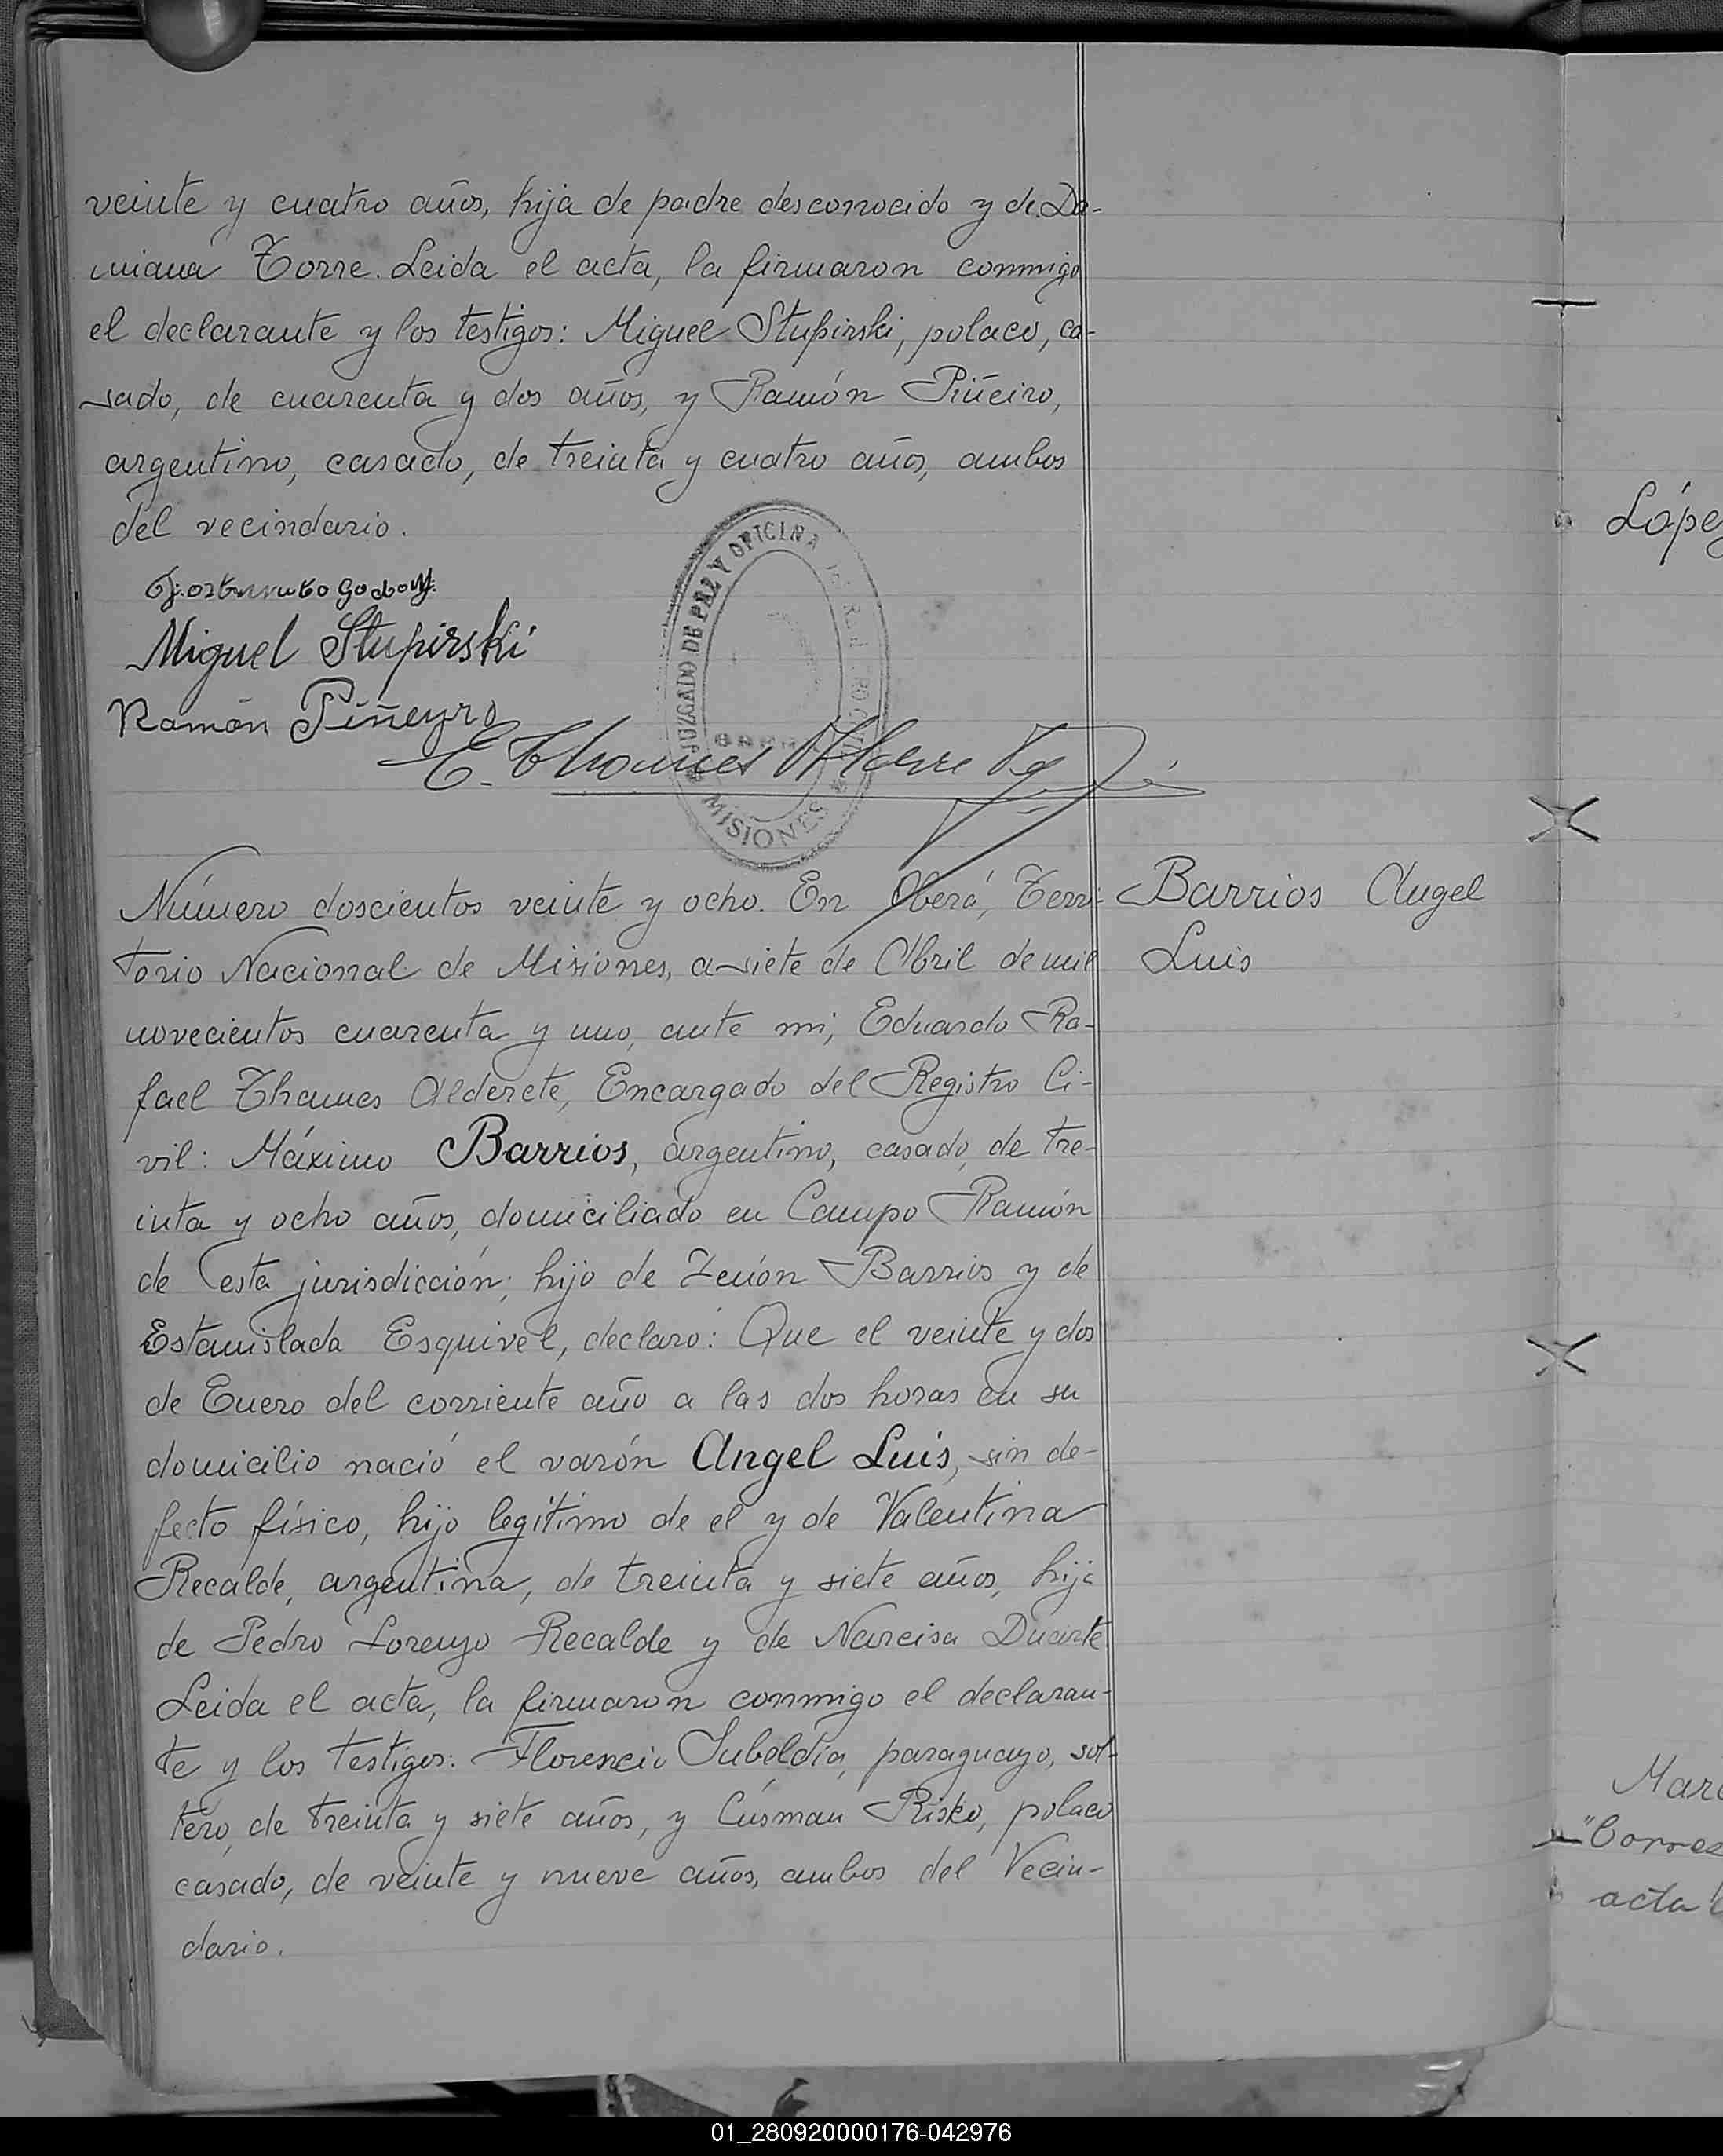 veinte y cuatro años, hija de padre desconocido y de Da-
miana Torre. Leida el acta, la firmaron conmigo
el declarante y los testigos: Miguel Stupirski, polaco, ca-
sado, de cuarenta y dos años, y Ramón Piñeiro,
argentino, casado, de treinta y cuatro años, ambos
del vecindario.
Godoy
Miguel Stupirski
Ramón Piñeyro
JUZGADO DE PAZ Y OFICINA
MISIONES
E. Thames
Número doscientos veinte y ocho. En Oberá, Terri-
torio Nacional de Misiones, a siete de Abril de mil
novecientos cuarenta y uno, ante mi, Eduardo Ra-
fael Thames Alderete, Encargado del Registro Ci-
vil: Máximo Barrios, argentino, casado, de tre-
inta y ocho años, domiciliado en Campo Ramón
de esta jurisdicción; hijo de Zenón Barrios y de
Estanislada Esquivel, declaró: Que el veinte y dos
de Enero del corriente año a las dos horas en su
domicilio nació el varón Angel Luis, sin de-
fecto físico, hijo legítimo de el y de Valentina
Recalde, argentina, de treinta y siete años, hija
de Pedro Lorenzo Recalde y de Narcisa Duarte
Leida el acta, la firmaron conmigo el declaran-
te y los testigos: Florencio Subeldía, paraguayo, sol-
tero, de treinta y siete años, y Cusman Risko, polaco
casado, de veinte y nueve años, ambos del Vecin-
dario.
Barrios Angel
Luis
López
acta
01_280920000176-042976